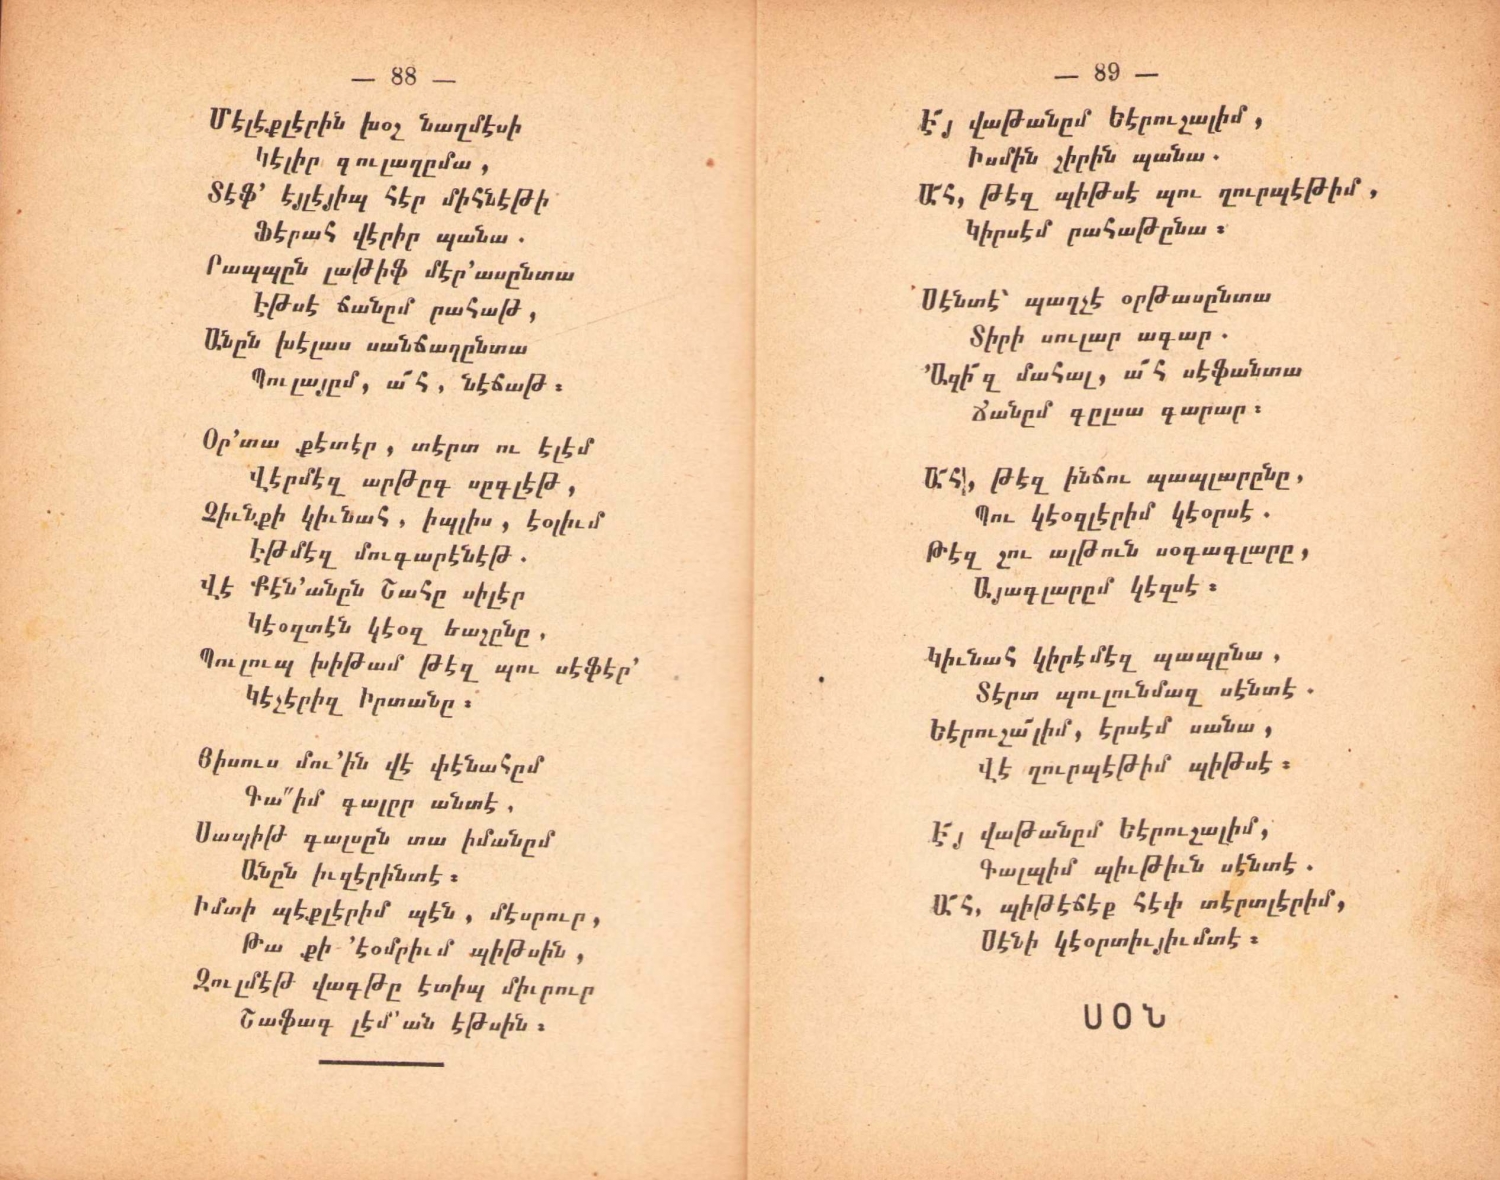 — 88 —
Մէլէքլէրին խօշ նաղմէսի
Կէլիր գուլաղըմա,
Տէֆ՚ էյլէյիպ հէր միհնէթի
Ֆէրահ վէրիր պանա.
Րապպըն լաթիֆ մէր՚ասընտա
Էթսէ ճանըմ րահաթ,
Անըն խէլաս սանճաղընտա
Պուլայըմ, ա՜հ, նէճաթ։
Օր՚տա քէտէր, տէրտ ու էլէմ
Վէրմէզ արթըգ սըգլէթ,
Զիւնքի կիւնահ, իպլիս, էօլիւմ
Էթմէզ մուգարէնէթ.
Վէ Քէն՚անըն Շահը սիլէր
Կէօզտէն կէօզ եաշընը,
Պուլուպ խիթամ թէզ պու սէֆէր՚
Կէչէրիզ Իրտանը։
Յիսուս մու՚ին վէ փէնահըմ
Գա՞իմ գալըր անտէ,
Սապիթ գալսըն տա իմանըմ
Անըն իւզէրինտէ։
Իմտի պէքլէրիմ պէն, մէսրուր,
Թա քի ՚էօմրիւմ պիթսին,
Զուլմէթ վագթը էտիպ միւրուր
Շաֆագ լէմ՚ան էթսին։
— 89 —
Է՜յ վաթանըմ Եէրուշալիմ,
Իսմին շիրին պանա.
Ա՜հ, թէզ պիթսէ պու ղուրպէթիմ,
Կիրսէմ րահաթընա։
Սէնտէ՝ պաղչէ օրթասընտա
Տիրի սուլար ագար.
՚Ազի՜զ մահալ, ա՜հ սէֆանտա
Ճանըմ գըլսա գարար։
Ա՜հ, թէզ ինճու պապլարընը,
Պու կէօզլէրիմ կէօրսէ.
Թէզ շու ալթուն սօգագլարը,
Այագլարըմ կէզսէ։
Կիւնահ կիրէմէզ պապընա,
Տէրտ պուլունմազ սէնտէ.
Եէրուշա՜լիմ, էրսէմ սանա,
Վէ ղուրպէթիմ պիթսէ։
Է՜յ վաթանըմ Եէրուշալիմ,
Գալպիմ պիւթիւն սէնտէ.
Ա՜հ, պիթէճէք հէփ տէրտլէրիմ,
Սէնի կէօրտիւյիւմտէ։
ՍՕՆ